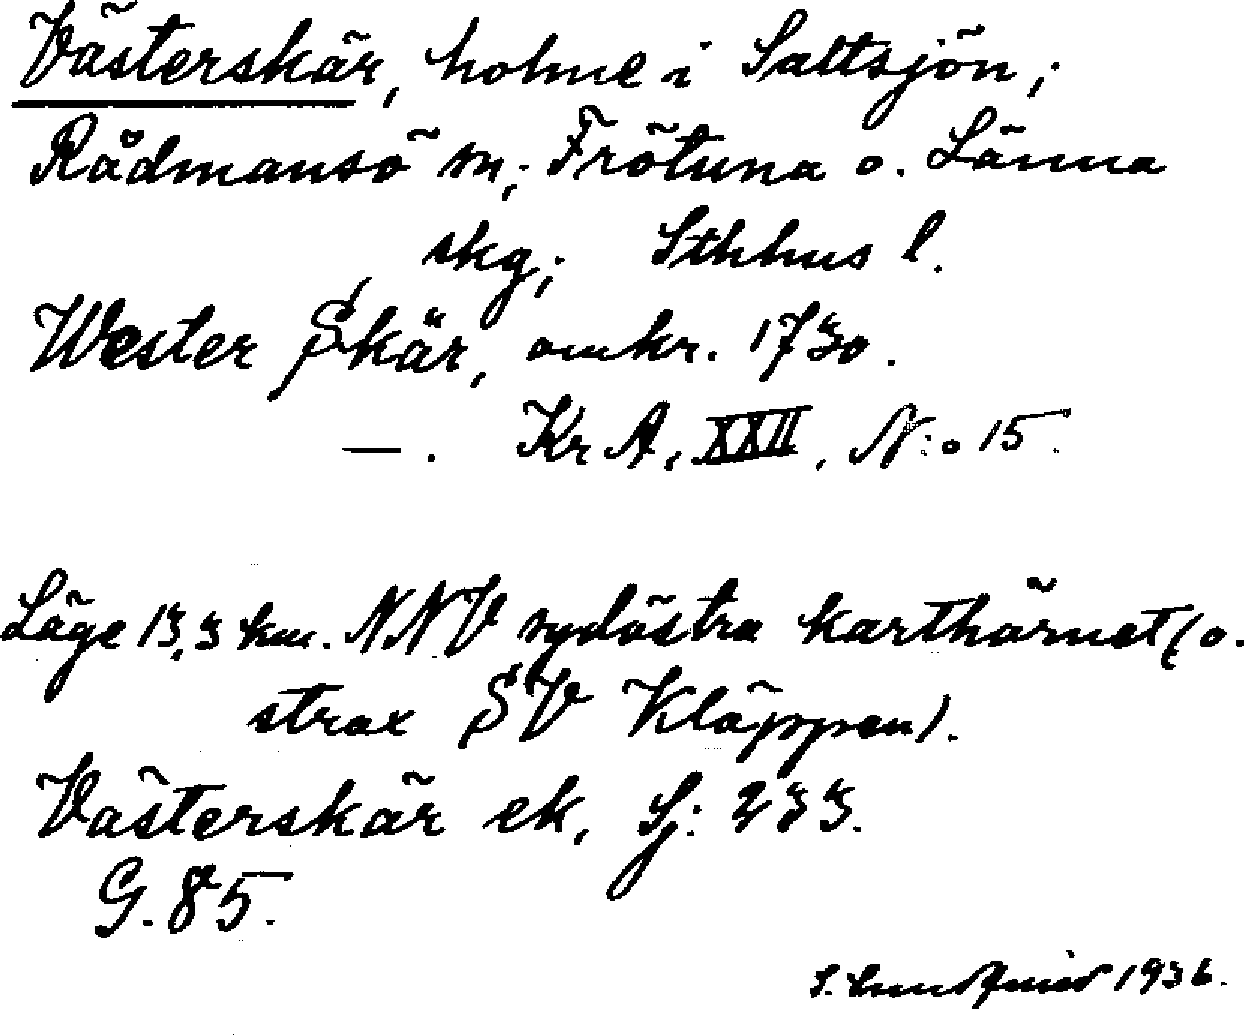 Västerskär, holme i Saltsjön;
Rådmansö sn; Frötuna o. Länna
skg; Sthhus l.
Wester Skär, omkr. 1730.
—. KrA, XXII, N:o 15.
Läge 13,3 km. NNV sydöstra karthörnet (o.
strax SV Kläppen).
Västerskär ek, Sj: 233.
G. 85.
S. 1936.